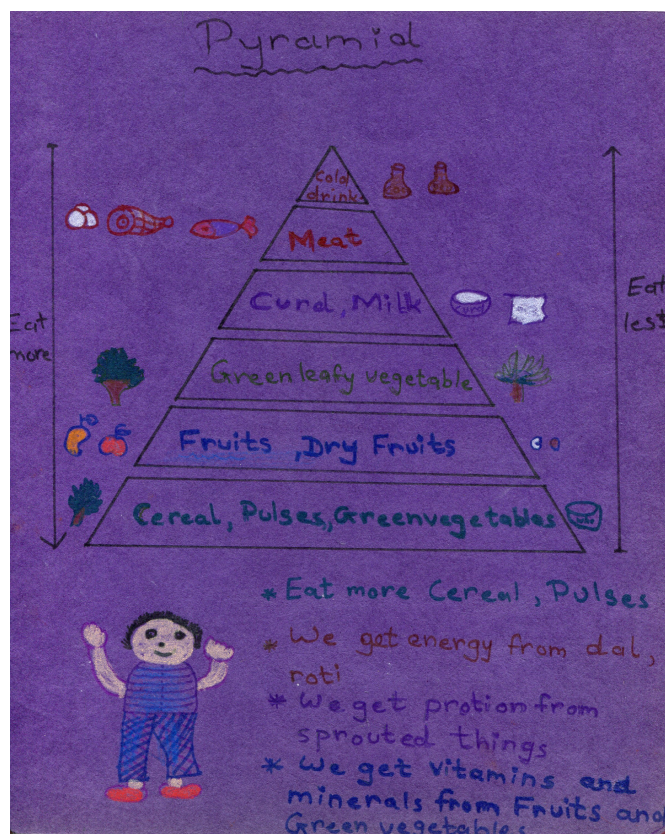 Pyramid
Cold
drink
Meat
Curd, Milk
Green leafy vegetable
Fruits, Dry Fruits
Cereal, Pulses, Greenvegetables
Eat
more
Eat
less
* Eat more Cereal, Pulses
* We get energy from dal,
roti
* We get protion from
sprouted things
* We get vitamins and
minerals from Fruits and
Green vegetables